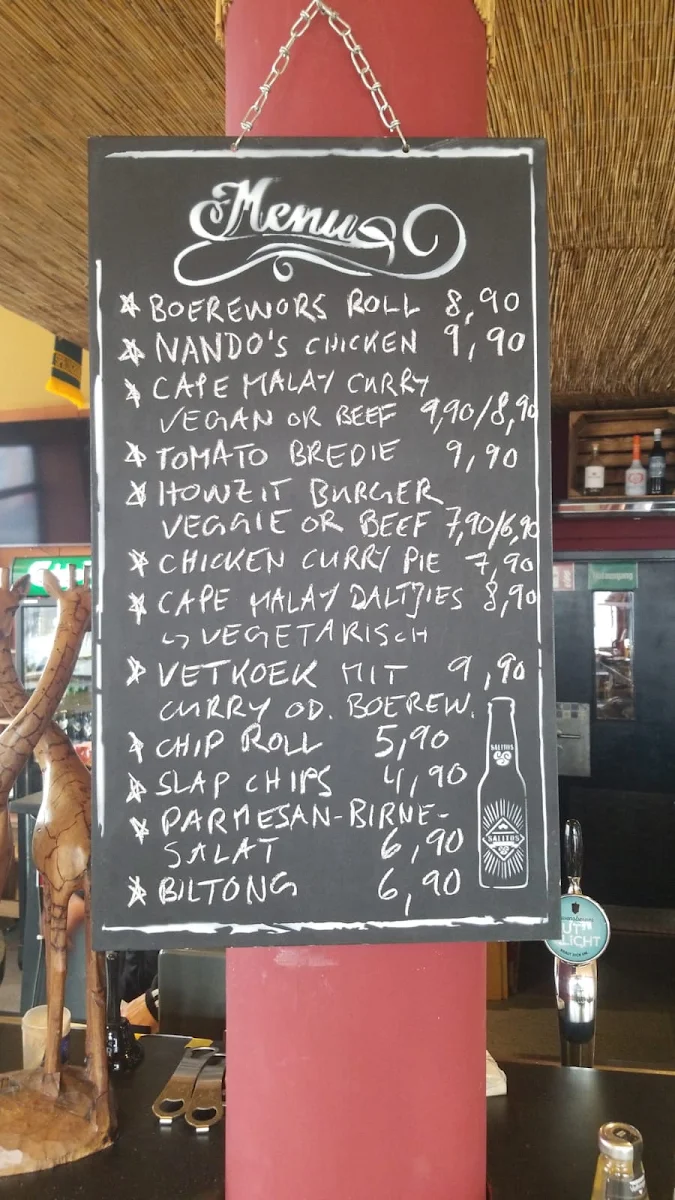 Menu
BOEREWORS ROLL 8,90
NANDO'S CHICKEN 9,90
CAPE MALAY CURRY
VEGAN OR BEEF 9,90/8,90
TOMATO BREDIE 9,90
HOWZIT BURGER
VEGGIE OR BEEF 7,90/6,90
CHICKEN CURRY PIE 7,90
CAPE MALAY DALTJIES 8,90
↳ VEGETARISCH
VETKOEK MIT 9,90
CURRY OD. BOEREW.
CHIP ROLL 5,90
SLAP CHIPS 4,90
PARMESAN-BIRNE-
SALAT 6,90
BILTONG 6,90
SALITOS
SALITOS
LICHT